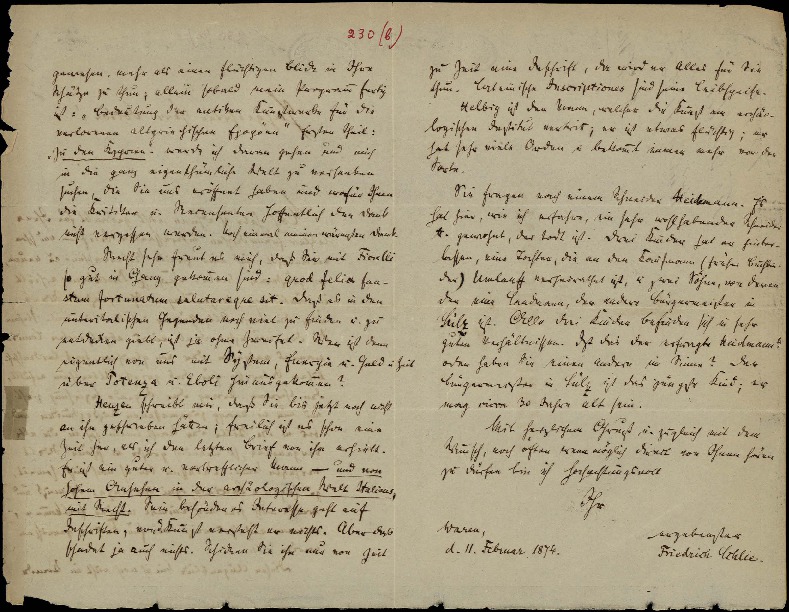 230 (b)
gewesen, mehr als einen flüchtigen Blick in Ihre
Schätze zu thun; allein sobald mein Programm fertig
ist: „Bedeutung der antiken Kunstwerke für die
verlorenen altgriechischen Epopöen" erster Theil:
„Zu den Kyprien" werde ich daran gehen und mich
in die ganz eigenthümliche Welt zu versenken
suchen, die Sie uns eröffnet haben und wofür Ihnen
die Kritiker u. Recensenten hoffentlich den Dank
nicht vergessen werden. Noch einmal meinen wärmsten Dank.
Recht sehr freut es mich, daß Sie mit Fiorelli
so gut in Gang gekommen sind: quod felix fau-
stum fortunatum salutareque sit. Daß es in den
unteritalischen Gegenden noch viel zu finden u. zu
entdecken giebt, ist ja ohne Zweifel. Wer ist denn
eigentlich von uns mit System, Energie u. Geld u. Zeit
über Potenza u. Eboli hinausgekommen?
Henzen schreibt mir, daß Sie bis jetzt noch nicht
an ihn geschrieben hätten; freilich ist es schon eine
Zeit her, als ich den letzten Brief von ihm erhielt.
Er ist ein guter u. vortrefflicher Mann — und von
hohem Ansehen in der archäologischen Welt Italiens,
mit Recht. Sein besonderes Interesse geht auf
Inschriften, von Kunst versteht er nichts. Aber das
schadet ja auch nichts. Schicken Sie ihm nur von Zeit
zu Zeit eine Inschrift, da wird er Alles für Sie
thun. Lateinische Inscriptiones sind seine Leibspeise.
Helbig ist der Mann, welcher die Kunst am archäo-
logischen Institut vertritt; er ist etwas flüchtig; er
hat sehr viele Orden u. bekommt immer mehr von der
Sorte.
Sie fragen nach einem Schneider Heidmann. Es
hat hier, wie ich erfahre, ein sehr wohlhabender Schneider
H. gewohnt, der todt ist. Drei Kinder hat er hinter-
lassen, eine Tochter, die an den Kaufmann (früher
) Umlauff verheirathet ist, u. zwei Söhne, von denen
der eine , der andere Bürgermeister in
Sülz ist. Alle drei Kinder befinden sich in sehr
guten Verhältnissen. Ist dies der erfragte Heidmann?
oder haben Sie einen andern im Sinne? Der
Bürgermeister in Sülz ist das jüngste Kind; er
mag circa 30 Jahre alt sein.
Mit herzlichem Gruß u. zugleich mit dem
Wunsch, noch öfter womöglich direct von Ihnen hören
zu dürfen bin ich hochachtungsvoll
Ihr
Waren,
d. 11. Februar 1874.
ergebenster
Friedrich Schlie.